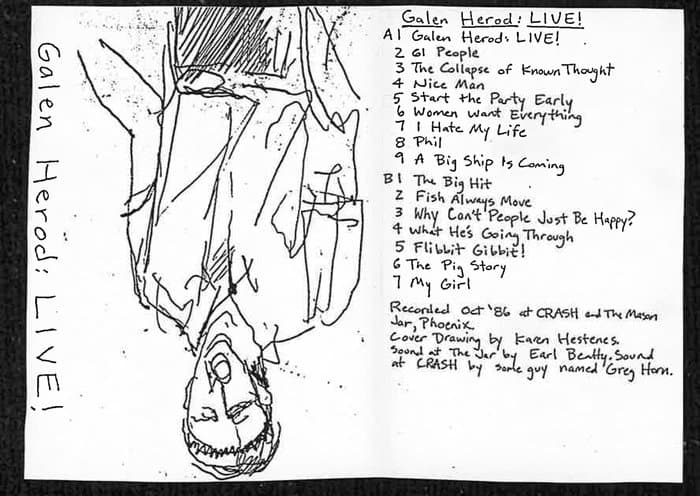 Galen Herod: LIVE!
Galen Herod: LIVE!
A1 Galen Herod: LIVE!
2 GI People
3 The Collapse of Known Thought
4 Nice Man
5 Start the Party Early
6 Women Want Everything
7 I Hate My Life
8 Phil
9 A Big Ship Is Coming
B1 The Big Hit
2 Fish Always Move
3 Why Can't People Just Be Happy?
4 What He's Going Through
5 Flibbit Gibbit!
6 The Pig Story
7 My Girl
Recorded Oct '86 at CRASH and The Mason
Jar, Phoenix.
Cover Drawing by Karen Hestenes.
Sound at The Jar by Earl Beatty. Sound
at CRASH by some guy named Greg Horn.